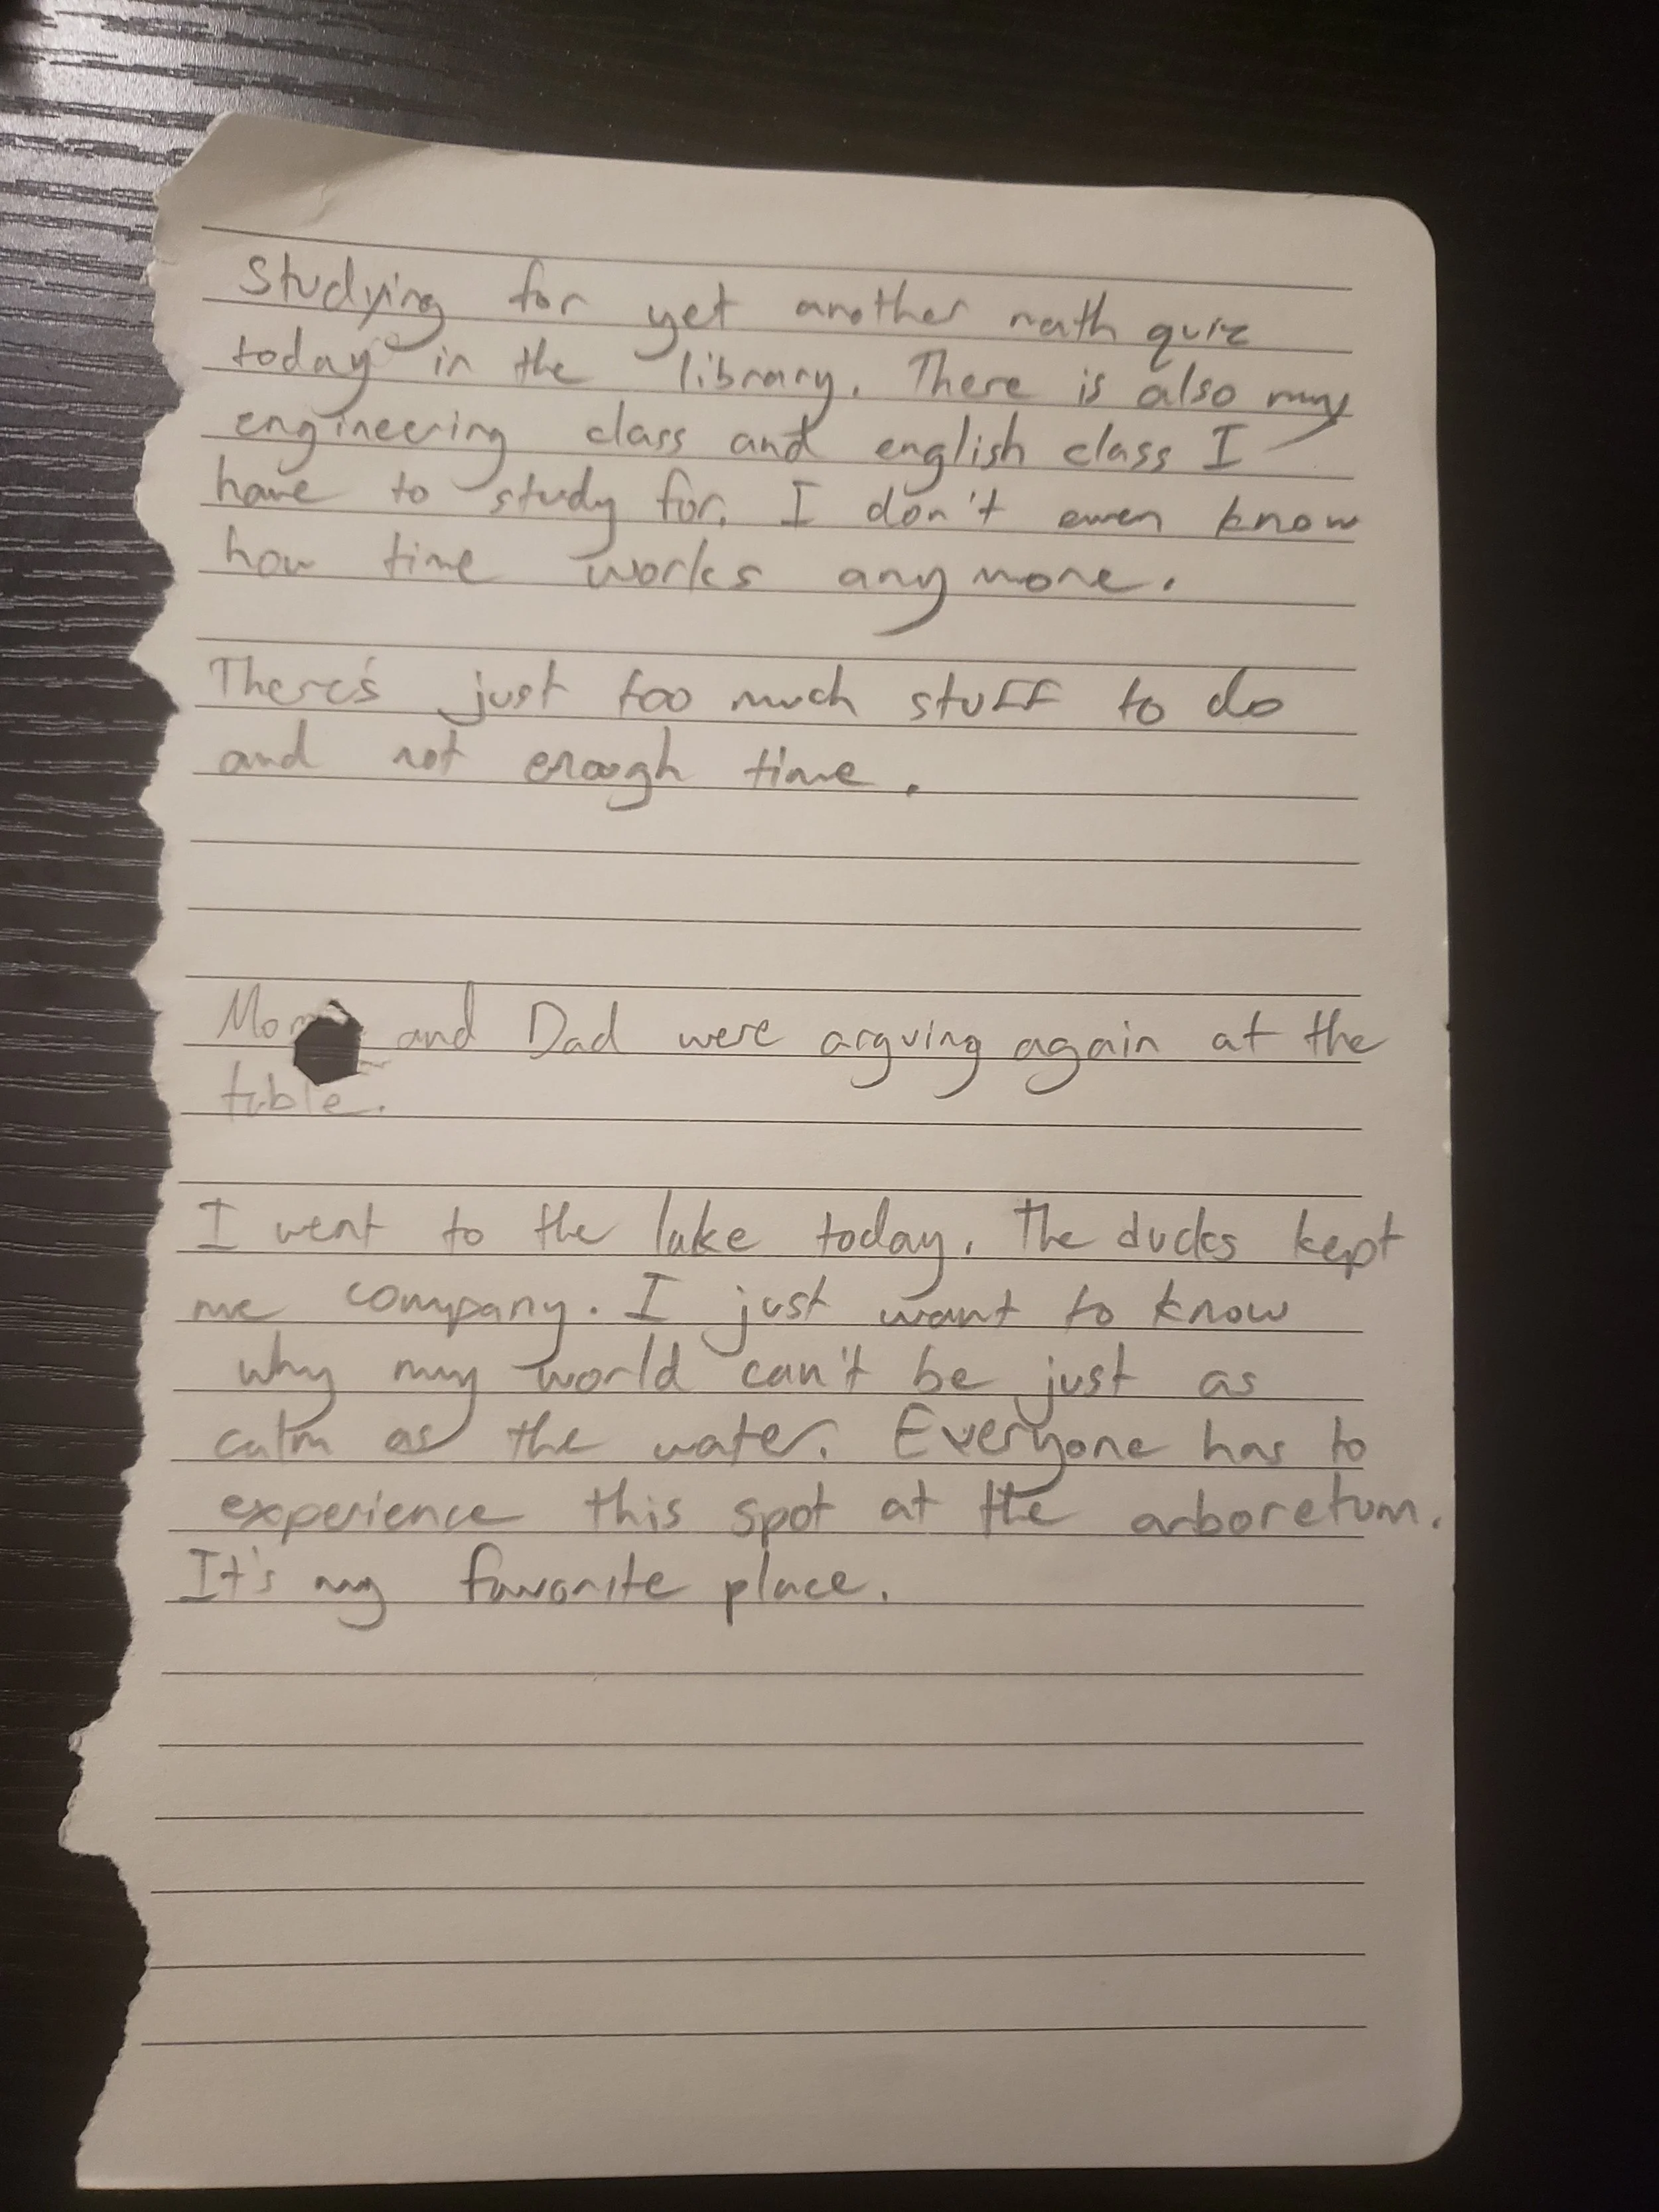 Studying for yet another math quiz
today in the library. There is also my
engineering class and english class I
have to study for. I don't even know
how time works anymore.
There's just too much stuff to do
and not enough time.
Mom and Dad were arguing again at the
table.
I went to the lake today. The ducks kept
me company. I just want to know
why my world can't be just as
calm as the water. Everyone has to
experience this spot at the arboretum.
It's my favorite place.